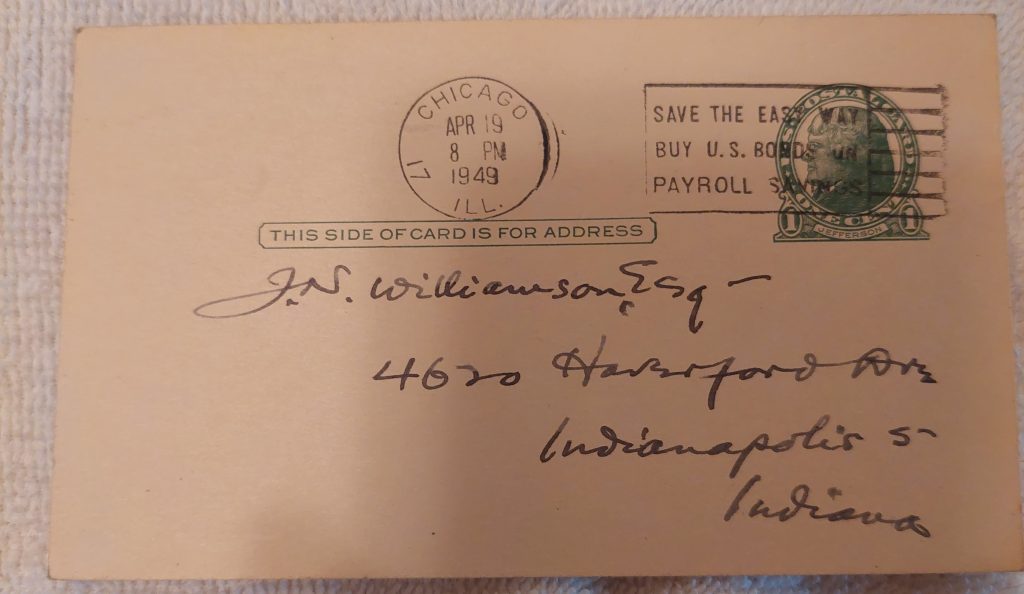 CHICAGO
APR 19
8 PM
1949
17 ILL.
SAVE THE EASY WAY
BUY U.S. BONDS ON
PAYROLL SAVINGS
1 JEFFERSON 1
THIS SIDE OF CARD IS FOR ADDRESS
J.N. Williamson, Esq-
4620 Haverford Ave
Indianapolis 5
Indiana